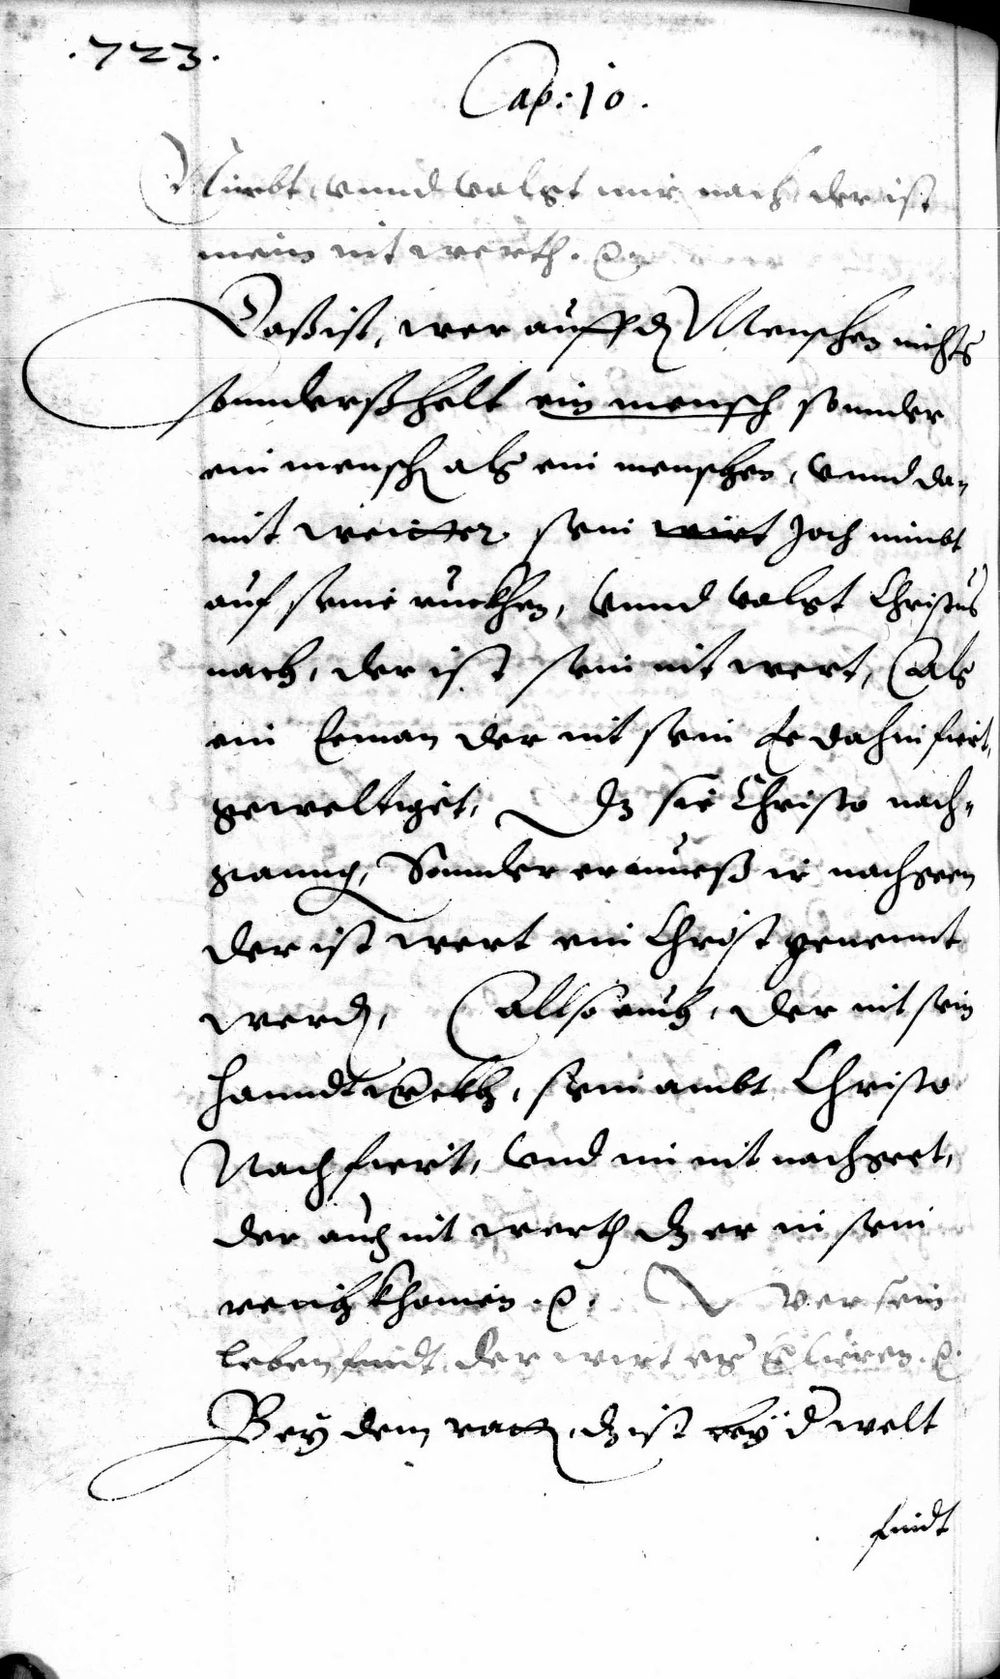 .723.
Cap: 10.
Nimbt, vnnd volgt mir nach der ist
mein nit werth. ꝛc
Daß ist, wer auff dē Menschen nichts
sounderß helt ein mensch sounder
ein mensch als ein menschen, vnnd da-
mit weitter sein wirt Joch nimbt
auf seine ruckhen, vnnd volgt Christus
nach, der ist sein nit wert, Als
ein Eeman der nit sein Ee dahin fiert,
geweltiget, Dz sie Christo nach-
ganng, Sounder er mueß ir nachgeen
der ist wert ein Christ genennt
werdē, Allso auch, der nit sein
hanndtwerckh, sein ambt Christo
Nachfiert, vnd im nit nachgeet,
der auch nit werth dz er in sein
reich khomen. ꝛc. Wer sein
leben findt, der wirt es verlieren. ꝛc.
Bey dem , dz ist bey d welt
findt